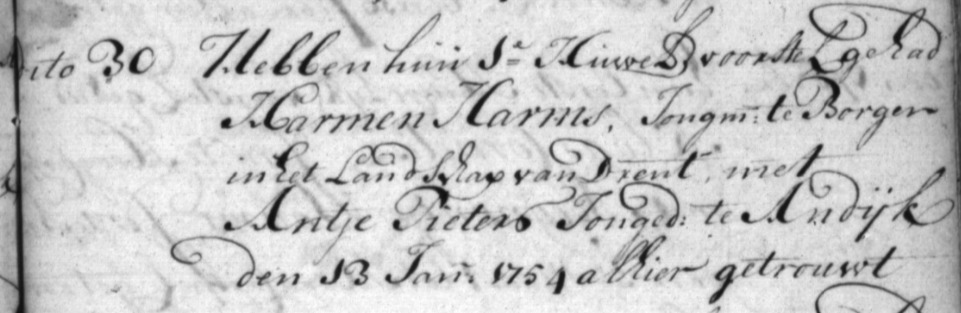 dito 30 Hebben hun 1e Huwel voorstel gehad
Harmen Harms, Jongm: te Borger
in het Landschap van Drent, met
Antje Pieters Jonged: te Andijk
den 13 Jan: 1754 alhier getrouwt